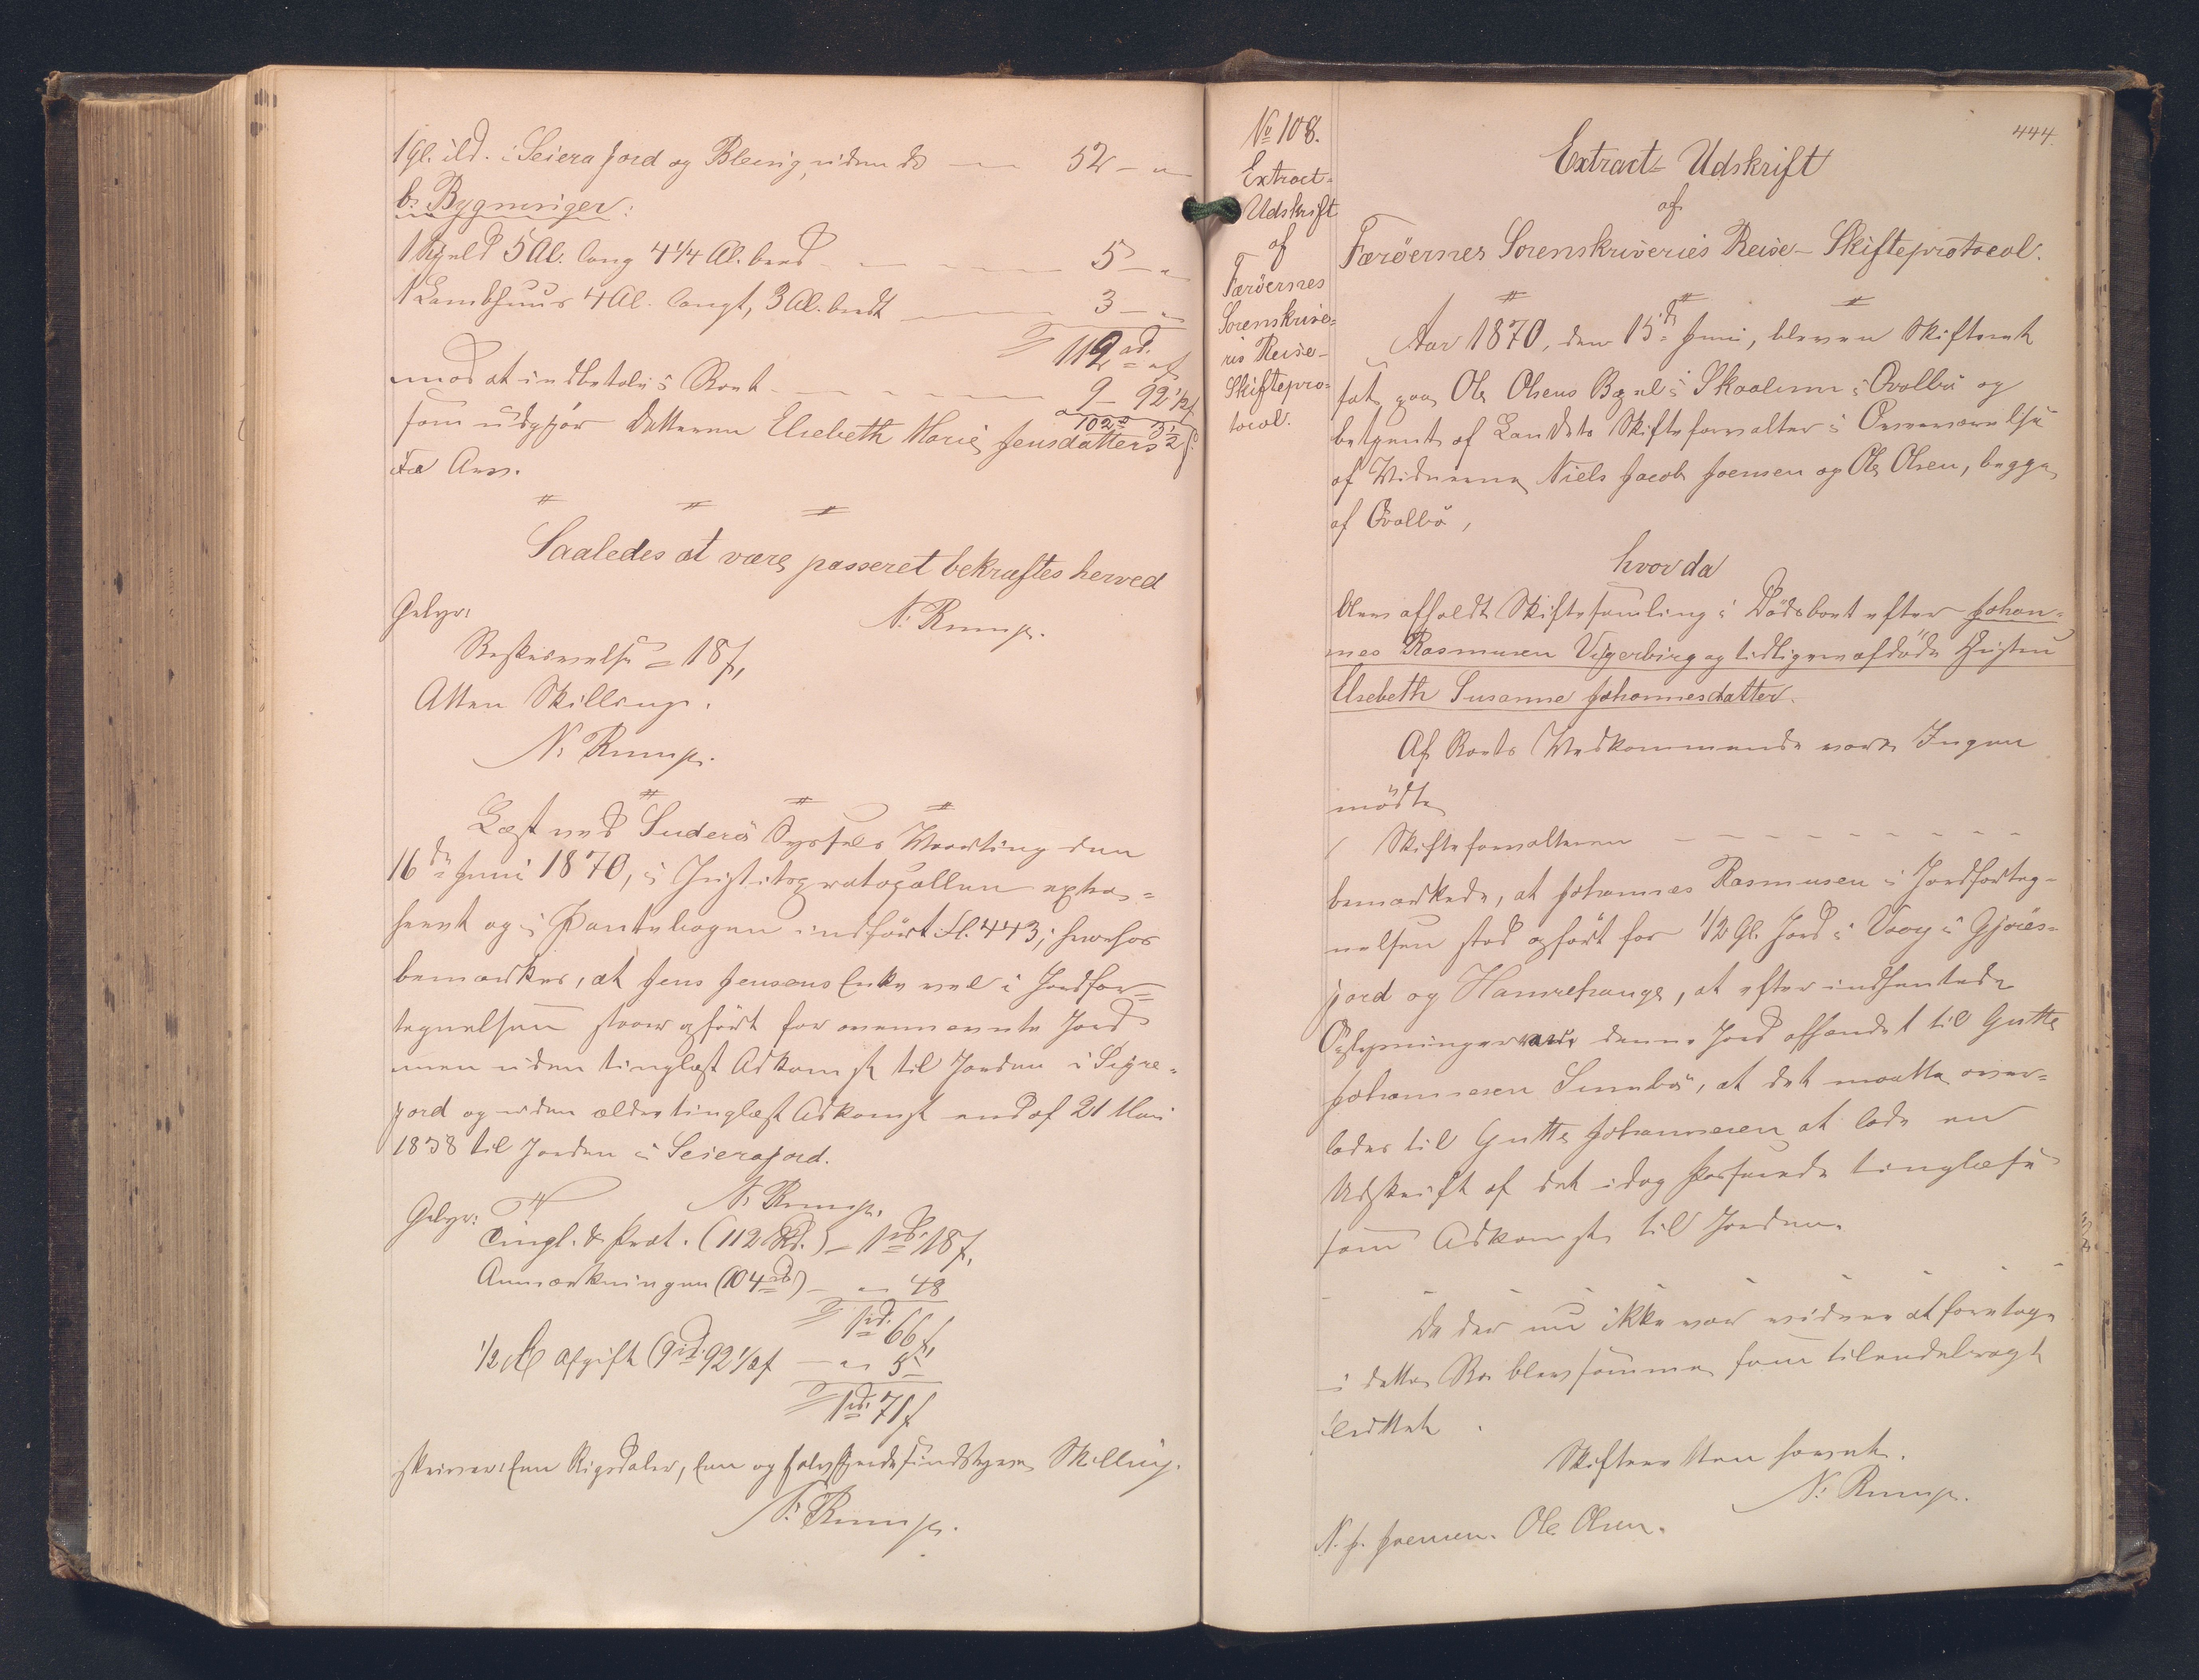 1 Gl. ild. i Seiera Jord og Bleivig, uden do — 52 — "
b: Bygninger:
1 Hjeld 5 Al. lang 4 1/4 Al. bred — 5 — "
1 Lambhuus 4 Al. langt, 3 Al. bredt — 3 — "
112 rd. "
mod at indbetale i Boet — 9 — 92 1/2 f
102 rd 3 1/2 f.
som udgjør Datteren Elsebeth Marie Jensdatters
Fæ Arv.
Saaledes at være passeret bekræftes herved
N. Rump.
Gebyr:
Beskrivelse = 18 f,
Atten Skilling.
N. Rump.
Læst ved Suderø Syssels Vaarting den
16de Juni 1870, i Justitsprotocollen extra=
heret og i Pantebogen indført Fl. 443; hvorhos
bemærkes, at Jens Jensens Enke vel i Jordfor=
tegnelsen staaer opført for ovennævnte Jord
men uden tinglæst Adkomst til Jorden i Sigre=
jord og uden ældre tinglæst Adkomst end af 21 Mai
1858 til Jorden i Seierajord.
N. Rump.
Gebyr:
Tingl. & Prot. (112 Rd.) — 1 rd. 18 f,
Anmærkningen (104 rd) — " 48
1 rd. 66 f,
1/2 % Afgift (9 rd. 92 1/2 f — " 5 —
1 rd. 71 f
skriver: Een Rigsdaler, Een og halvfjerdesindstyve Skilling.
N. Rump.
No 108.
Extract=
Udskrift
af
Færöernes
Sorenskrive=
ries Reise-
Skiftepro=
tocol.
444.
Extract= Udskrift
af
Færöernes Sorenskriveries Reise- Skifteprotocol.
Aar 1870, den 15de Juni, bleven Skifteret
sat paa Ole Olsens Bopæl i Skaalum i Qvalbø og
betjent af Landets Skifteforvalter i Overværelse
af Vidnerne Niels Jacob Joensen og Ole Olsen, begge
af Qvalbø,
hvor da
blev afholdt Skiftesamling i Dødsboet efter Johan=
nes Rasmusen Vejerbirg og tidligere afdøde Hustru
Elsebeth Susanne Johannesdatter.
Af Boets Vedkommende vare Ingen
mødte
Skifteforvalteren — — — — — — — —
bemærkede, at Johannes Rasmusen i Jordforteg-
nelsen stod opført for 1/2 Gl. Jord i Vaag i Gjöes=
jord og Hamrehauge, at efter indhentede
Oplysninger var denne Jord afhændet til Gutte
Johannesen Sumbø, at det maatte over=
lades til Gutte Johannesen at lade en
Udskrift af det idag passerede tinglæse
som Adkomst til Jorden.
Da der nu ikke var videre at foretage
i dette Bo blev samme som tilendebragt
sluttet.
Skifteretten hævet.
N. Rump.
N. J. Joensen. Ole Olsen.